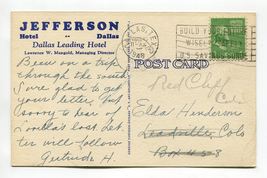 JEFFERSON
Hotel •• Dallas
Dallas Leading Hotel
Lawrence W. Mangold, Managing Director
DALLAS, TEX.
1948
BUILD YOUR FUTURE
WISELY
U.S. SAVINGS BONDS
POST CARD
Been on a trip
through the south
Was glad to get
your letter. But
sorry to hear of
last let-
ter will follow
Gertrude H.
Red Cliff
Colo
Elda Henderson
Leadville, Colo
Box 458